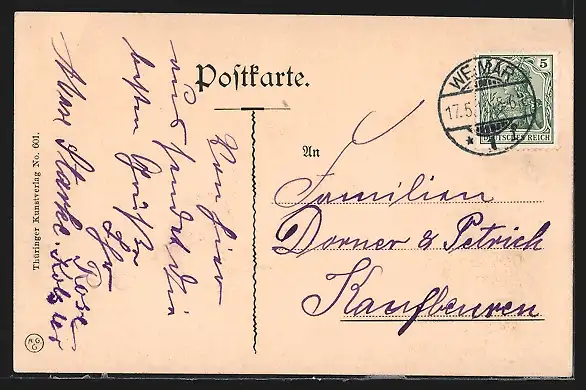 Postkarte.
5
DEUTSCHES REICH
WEIMAR
17.5.
An
Familien
Dorner & Petrich
Kaufbeuren
Von hier
und sendet die
besten Grüße
Ihr
Rose
Max Starke.
Thüringer Kunstverlag No. 601.